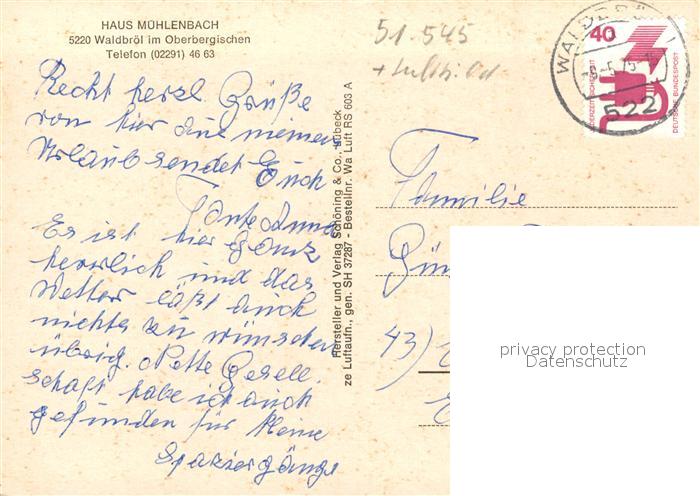 HAUS MÜHLENBACH
5220 Waldbröl im Oberbergischen
Telefon (02291) 46 63
51.545
+ Luftbild
Recht herzl. Grüße
von hier aus meinem
Urlaub sendet Euch
Tante Anna
Es ist hier ganz
herrlich und das
Wetter läßt auch
nichts zu wünschen
übrig. Nette Gesell-
schaft habe ich auch
gefunden für kleine
Spaziergänge
Hersteller und Verlag Schöning & Co., Lübeck
ze Luftaufn., gen. SH 37287 - Bestellnr. Wa Luft RS 603 A
Familie
43)
40
JEDERZEIT SICHERHEIT
DEUTSCHE BUNDESPOST
522
privacy protection
Datenschutz